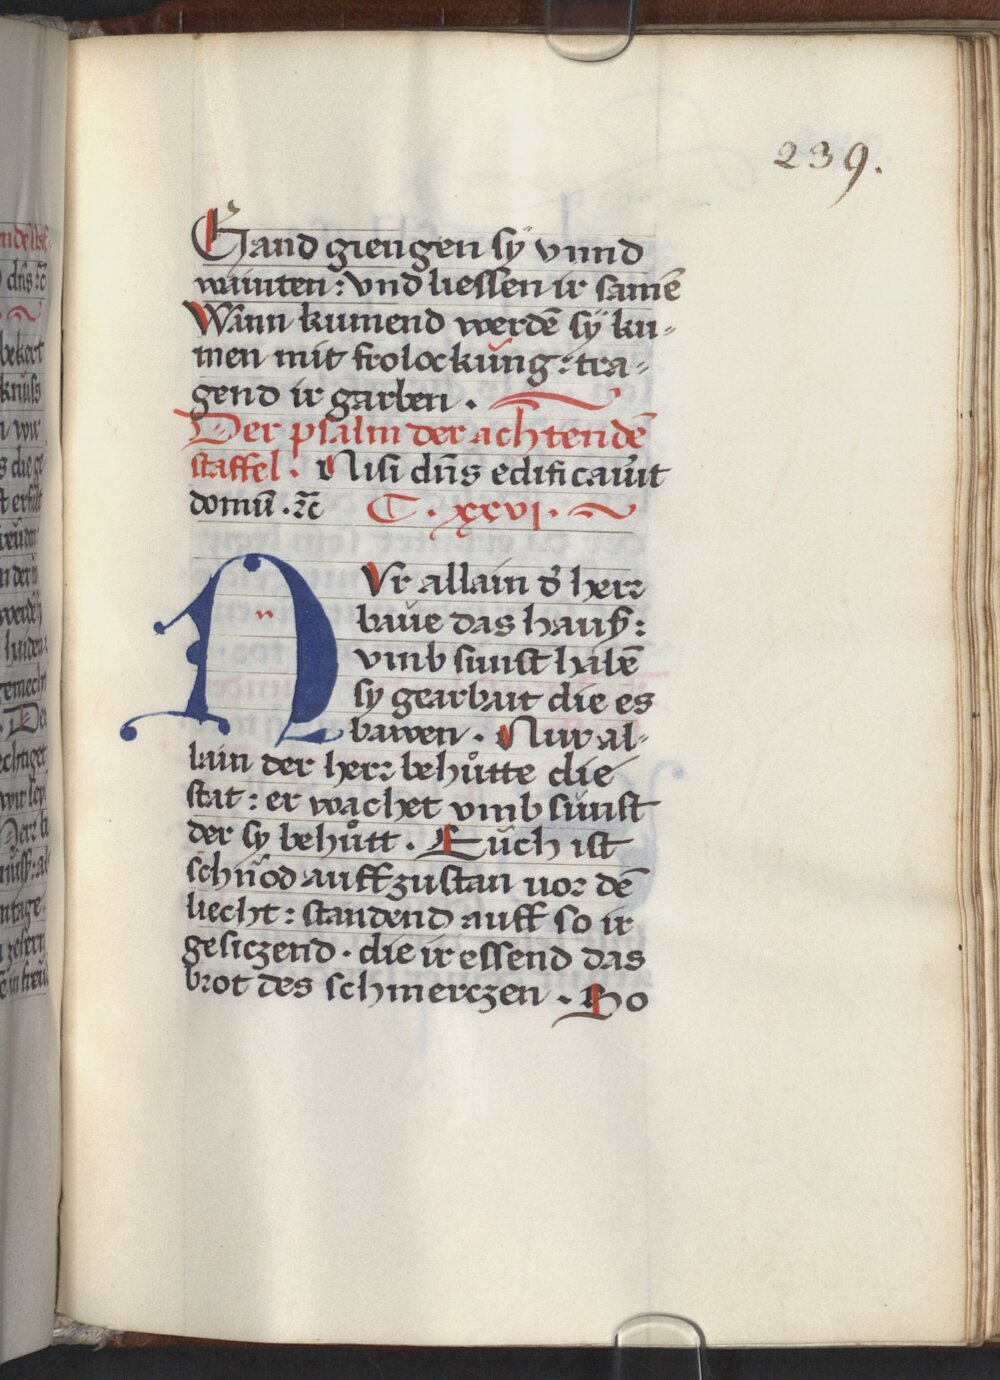 239.
Gand giengen sÿ vnnd
wainten: vnd liessen ir samē
Wann kumend werdē sÿ ku-
men mit frolockŭng: tra-
gend ir garben .
Der psalm der achtendē
staffel. Nisi dn̄s edificauıt
domū. ⁊c̄ C. xxvj.
Nvr allain d̕ herr
baŭe das hauß:
vmb sunst habē
sy gearbait die es
bawen. Nur al-
lain der herr behůtte die
stat: er wachet vmb sŭnst
der sy behůtt. Eŭch ist
schnöd auffzustan vor dē
liecht: standend auff so ir
gesiczend. die ir essend das
brot des schmerczen. So